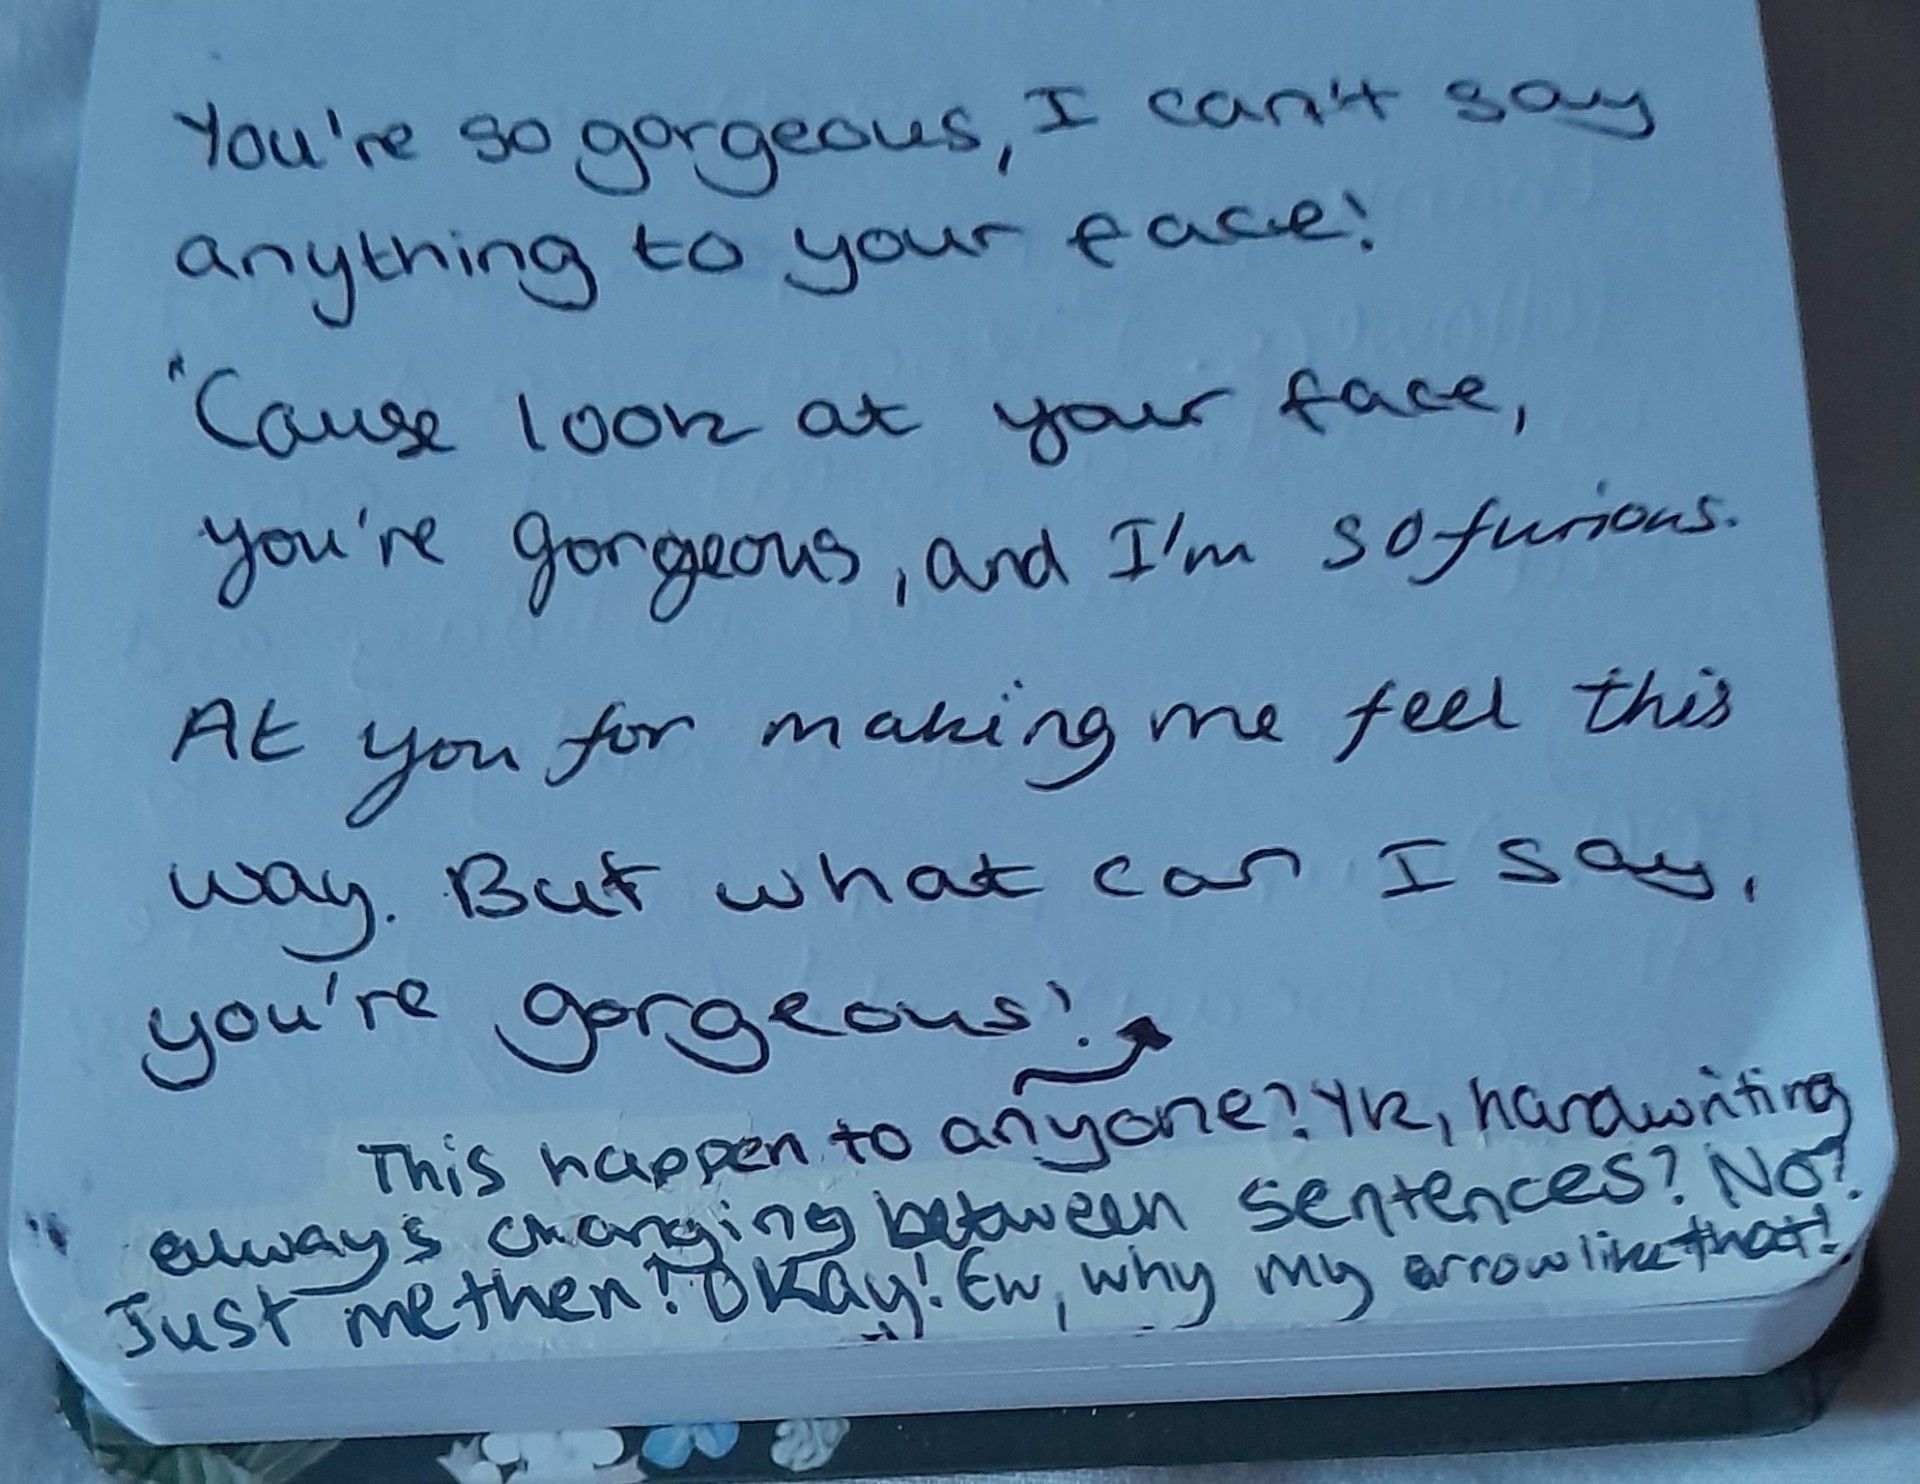 You're so gorgeous, I can't say
anything to your face!
"Cause look at your face,
you're gorgeous, and I'm so furious.
At you for making me feel this
way. But what can I say,
you're gorgeous!
This happen to anyone? Yk, handwriting
always changing between sentences? No?
Just me then? Okay! Ew, why my arrow like that!